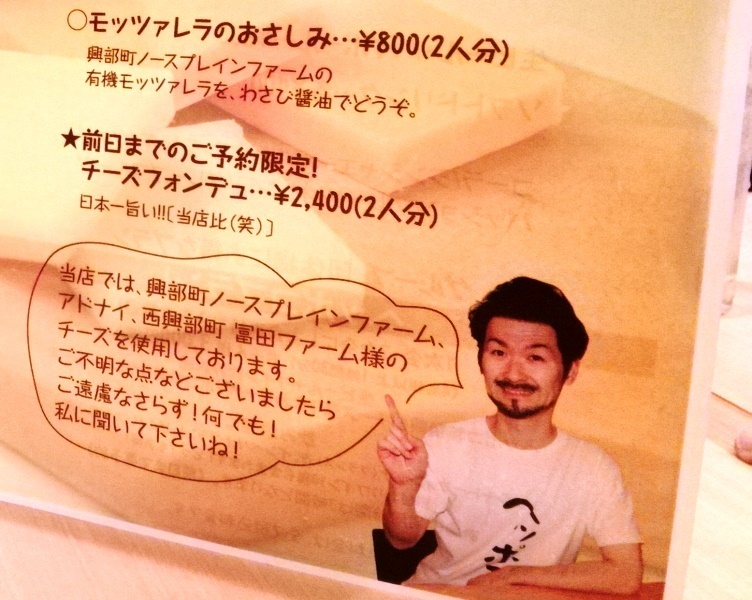 ○モッツァレラのおさしみ…¥800(2人分)
興部町ノースプレインファームの
有機モッツァレラを、わさび醤油でどうぞ。
★前日までのご予約限定!
チーズフォンデュ…¥2,400(2人分)
日本一旨い!!〔当店比(笑)〕
当店では、興部町ノースプレインファーム、
アドナイ、西興部町 冨田ファーム様の
チーズを使用しております。
ご不明な点などございましたら
ご遠慮なさらず!何でも!
私に聞いて下さいね!